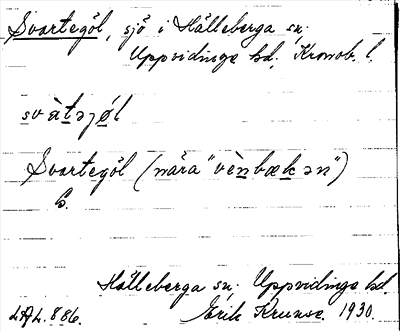 Svartegöl, sjö i Hälleberga sn.
Uppvidinge hd, Kronob. l.
svàtəjǿl
Svartegöl (nära "vènbækən")
b.
Hälleberga sn. Uppvidinge hd.
LAL. 886. Erik Kruuse. 1930.